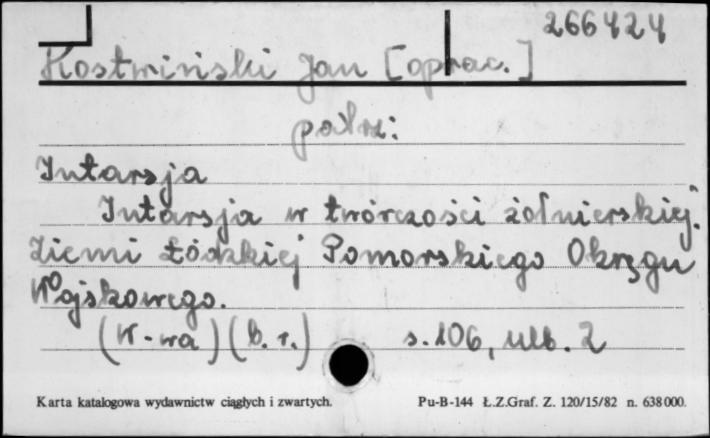 266424
Kostwiński Jan [oprac.]
patrz:
Intarsja
Intarsja w twórczości żołnierskiej.
Ziemi Łódzkiej Pomorskiego Okręgu
Wojskowego.
(W-wa) (b.r.) s. 106, nlb. 2
Karta katalogowa wydawnictw ciągłych i zwartych.
Pu-B-144 Ł.Z.Graf. Z. 120/15/82 n. 638000.